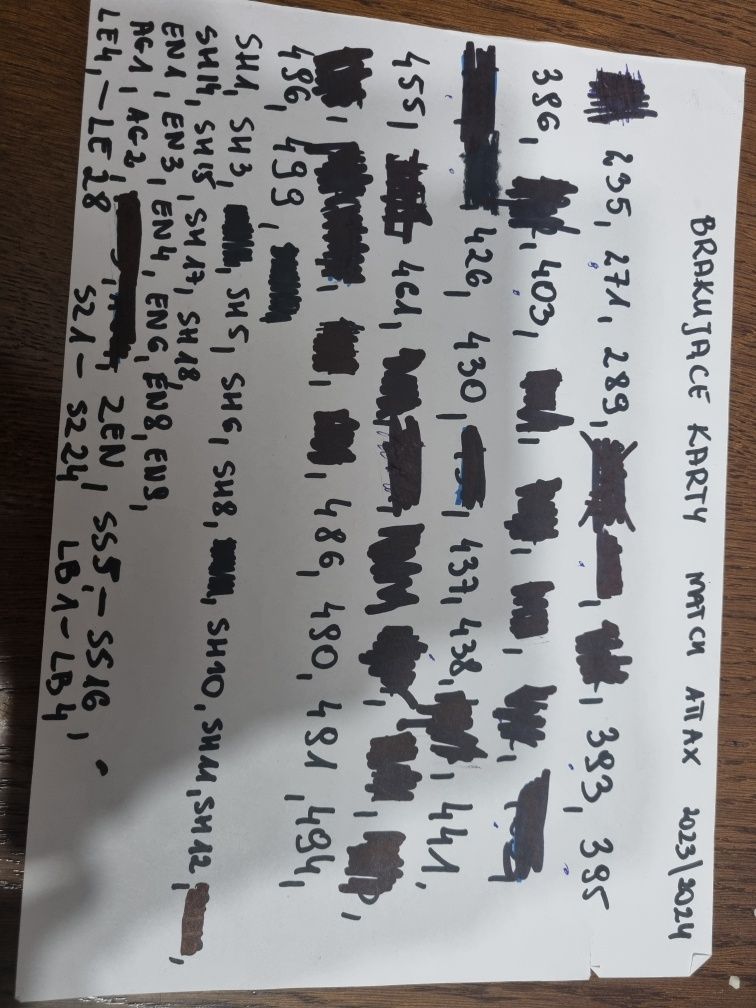 BRAKUJACE KARTY MATCH ATTAX 2023/2024
235, 271, 289, 383, 385
386, 403,
426, 430, 437, 438, 441,
455, 461,
486, 490, 491, 494,
496, 499,
SH1, SH3, SH5, SH6, SH8, SH10, SH11, SH12,
SH14, SH15, SH17, SH18
EN1, EN3, EN4, EN6, EN8, EN9,
AG1, AG2, ZEN, SS5, - SS16,
LE4, - LE28 SZ1 - SZ24 LB1 - LB4,